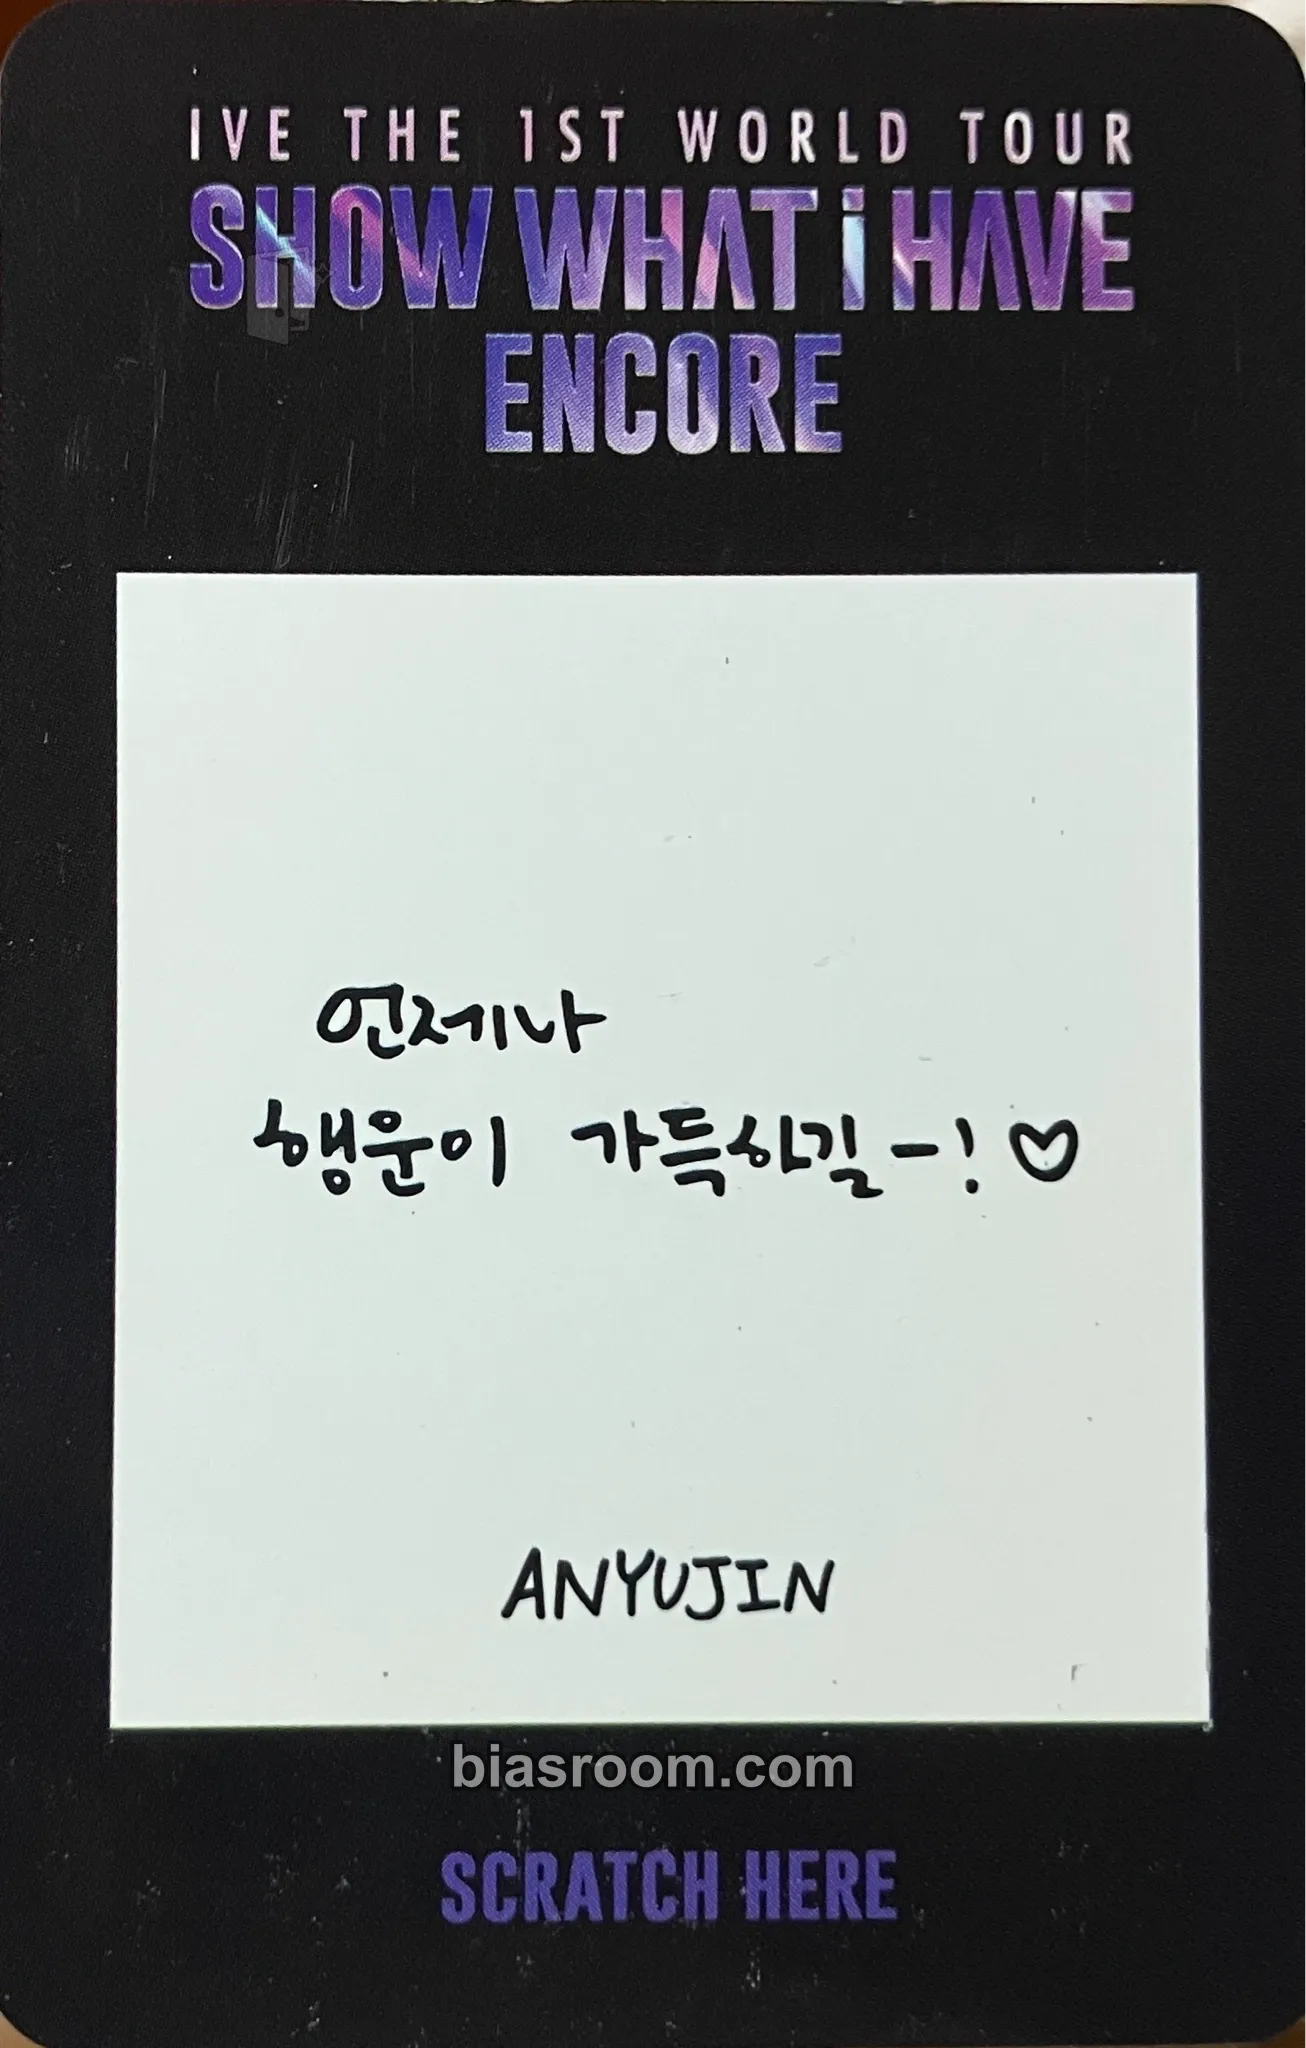 IVE THE 1ST WORLD TOUR
SHOW WHAT i HAVE
ENCORE
언제나
행운이 가득하길-! ♡
ANYUJIN
biasroom.com
SCRATCH HERE